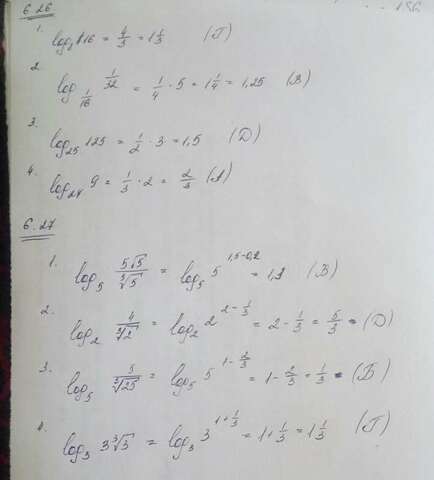 156
6.26
1. log₈16 = 4/3 = 1 1/3 (Г)
2. log_{1/16} 1/32 = 1/4 · 5 = 1 1/4 = 1,25 (В)
3. log₂₅125 = 1/2 · 3 = 1,5 (Д)
4. log₂₇ 9 = 1/3 · 2 = 2/3 (А)
6.27
1. log₅ 5√5/⁵√5 = log₅ 5^{1,5-0,2} = 1,3 (В)
2. log₂ 4/³√2 = log₂ 2^{2-1/3} = 2 - 1/3 = 5/3 - (Д)
3. log₅ 5/³√25 = log₅ 5^{1-2/3} = 1 - 2/3 = 1/3 - (Б)
4. log₃ 3³√3 = log₃ 3^{1+1/3} = 1 + 1/3 = 1 1/3 (Г)